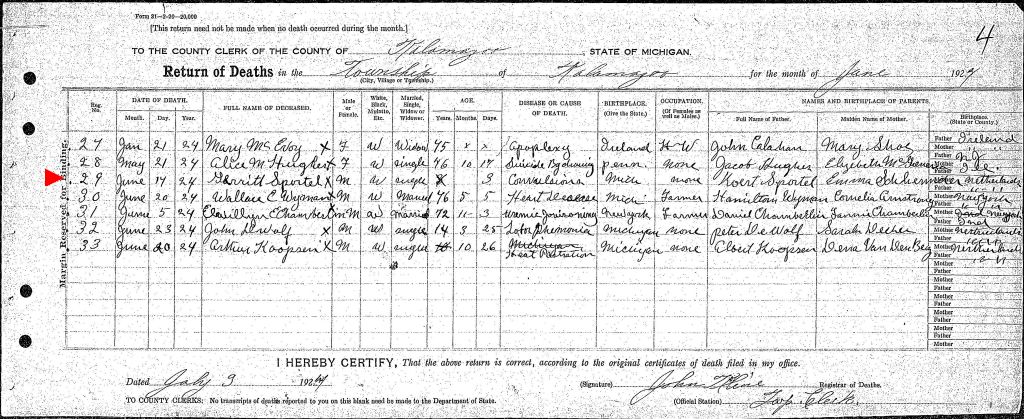 Form 31—3-20—20,000
4
[This return need not be made when no death occurred during the month.]
TO THE COUNTY CLERK OF THE COUNTY OF Kalamazoo, STATE OF MICHIGAN,
Return of Deaths in the Township of Kalamazoo for the month of June 1924
(City, Village or Township.)
Reg. No. DATE OF DEATH. Month. Day. Year. FULL NAME OF DECEASED. Male or Female. White, Black, Mulatto, Etc. Married, Single, Widow or Widower. AGE. Years Months Days. DISEASE OR CAUSE OF DEATH. BIRTHPLACE. (Give the State.) OCCUPATION. (Of Females as well as Males.) NAMES AND BIRTHPLACE OF PARENTS. Full Name of Father. Maiden Name of Mother. Birthplace. (State or County.)
27 Jan 21 24 Mary McEvoy x F W Widow 75 x x Apoplexy Ireland H-W John Calahan Mary Shay Father Ireland Mother
28 May 21 24 Alice M Hughes x F W single 76 10 17 Suicide By penn. none Jacob Hughes Elizabeth Father N.J. Mother
29 June 17 24 Gerritt Sportel x M W single x 3 Convulsions Mich none Koert Sportel Emma netherlands
30 June 20 24 Wallace C Wyman x M W Married 76 5 5 Heart Disease Mich Farmer Hamilton Wyman Cornelia Armstrong New York
31 June 5 24 Chamberlin M W married 72 11 3 New york Farmer Daniel Chamberlin Fannie Chamberlin
32 June 23 24 John DeWolf x M W single 14 3 25 Michigan none peter DeWolf Sarah netherlands
33 June 20 24 Arthur Koopsen x M W single 10 26 Michigan Michigan none Albert Koopsen Dena Van Den Berg netherlands
Heat Prostration
Margin Reserved for Binding.
Father
Mother
Father
Mother
Father
Mother
Father
Mother
I HEREBY CERTIFY, That the above return is correct, according to the original certificates of death filed in my office.
Dated July 3 1924 (Signature) John Kline Registrar of Deaths.
TO COUNTY CLERKS: No transcripts of deaths reported to you on this blank need be made to the Department of State. (Official Station) Twp. Clerk